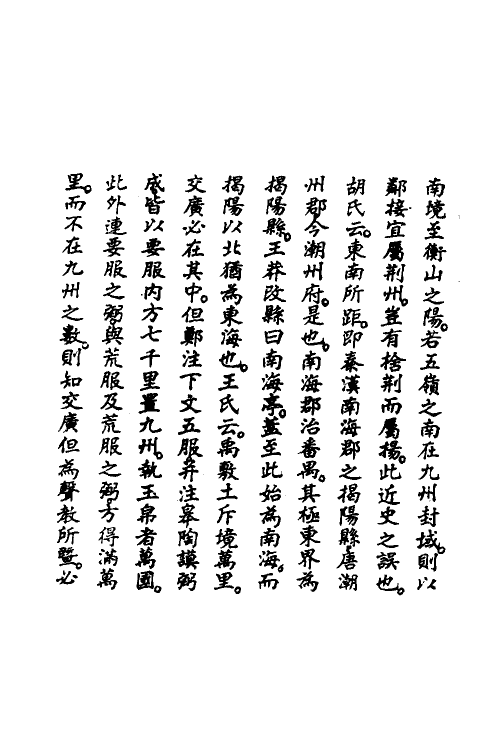 南境至衡山之陽。若五嶺之南在九州封域。則以
鄰接宜屬荆州。豈有捨荆而屬揚。此近史之誤也。
胡氏云。東南所距。即秦漢南海郡之揭陽縣。唐潮
州郡。今潮州府。是也。南海郡治番禺。其極東界為
揭陽縣。王莽改縣曰南海亭。蓋至此始為南海。而
揭陽以北猶為東海也。王氏云。禹敷土斥境萬里。
交廣必在其中。但鄭注下文五服。并注皋陶謨弼
成。皆以要服内方七千里置九州。執玉帛者萬國。
此外連要服之弼。與荒服及荒服之弼。方得滿萬
里。而不在九州之數。則知交廣但為聲教所曁。必